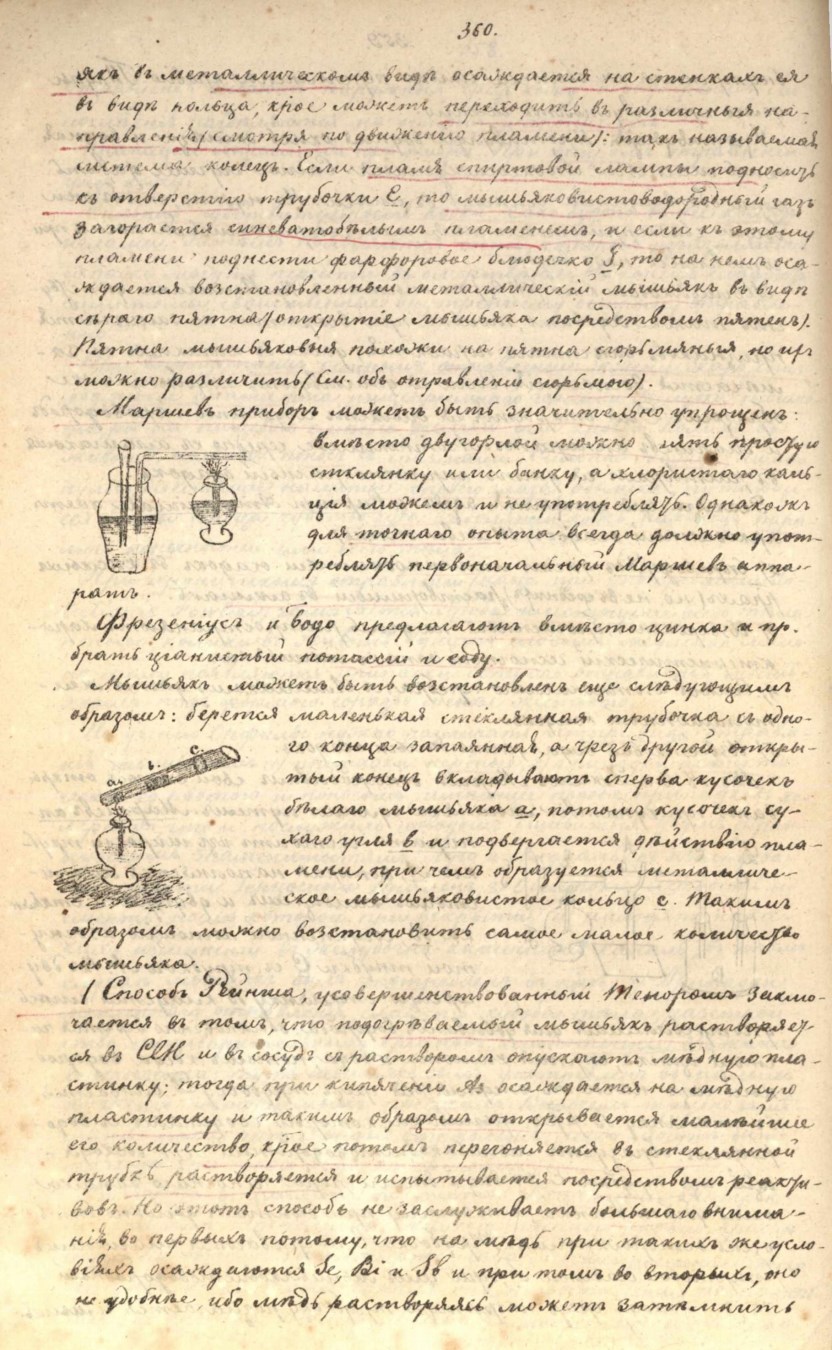 360.
якъ въ металлическомъ видѣ осаждается на стенкахъ ея
въ видѣ кольца, крое можетъ переходить въ различныя на-
правленія (смотря по движенію пламени): такъ называемая
система колецъ. Если пламя спиртовой лампы подносить
къ отверстію трубочки Е, то мышьяковистоводородный газъ
загорается синеватобѣлымъ пламенемъ, и если къ этому
пламени поднести фарфоровое блюдечко, то на немъ оса-
ждается возстановленный металлическій мышьякъ въ видѣ
сѣраго пятна (открытіе мышьяка посредствомъ пятенъ).
Пятна мышьяковыя похожи на пятна сюрьмяныя, но ихъ
можно различить (См. объ отравленіи сюрьмою).
Маршевъ приборъ можетъ быть значительно упрощенъ:
вмѣсто двугорлой можно взять простую
стклянку или банку, а хлористаго каль-
ція можемъ и не употреблять. Однакожъ
для точнаго опыта всегда должно упот-
реблять первоначальный Маршевъ аппа-
ратъ.
Фрезеніусъ и Бодо предлагаютъ вмѣсто цинка и пр.
брать ціанистый потассій и соду.
Мышьякъ можетъ быть возстановленъ еще слѣдующимъ
образомъ: берется маленькая стеклянная трубочка съ одно-
го конца запаянная, а чрезъ другой откры-
тый конецъ вкладываютъ сперва кусочекъ
бѣлаго мышьяка а, потомъ кусочекъ су-
хаго угля в и подвергается дѣйствію пла-
мени, при чемъ образуется металличе-
ское мышьяковистое кольцо с. Такимъ
образомъ можно возстановить самое малое количество
мышьяка.
a. b. c.
(Способъ Рейнша, усовершенствованный Теноромъ заклю-
чается въ томъ, что подогрѣваемый мышьякъ растворяет-
ся въ ClH и въ сосудъ съ растворомъ опускаютъ мѣдную пла-
стинку; тогда при кипяченіи As осаждается на мѣдную
пластинку и такимъ образомъ открывается малѣйшее
его количество, крое потомъ перегоняется въ стеклянной
трубкѣ растворяется и испытывается посредствомъ реакти-
вовъ. Но этотъ способъ не заслуживаетъ большаго внима-
нія, во первыхъ потому, что на мѣдь при такихъ же усло-
віяхъ осаждаются Se, Bi и Sb и при томъ во вторыхъ, оно
не удобнѣе, ибо мѣдь растворяясь можетъ затемнить